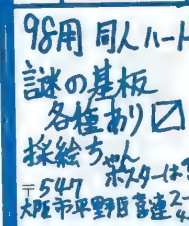 98用 同人ハート
謎の基板
各種あり
採絵ちゃん
ポスターは
〒547
大阪市平野区喜連2-